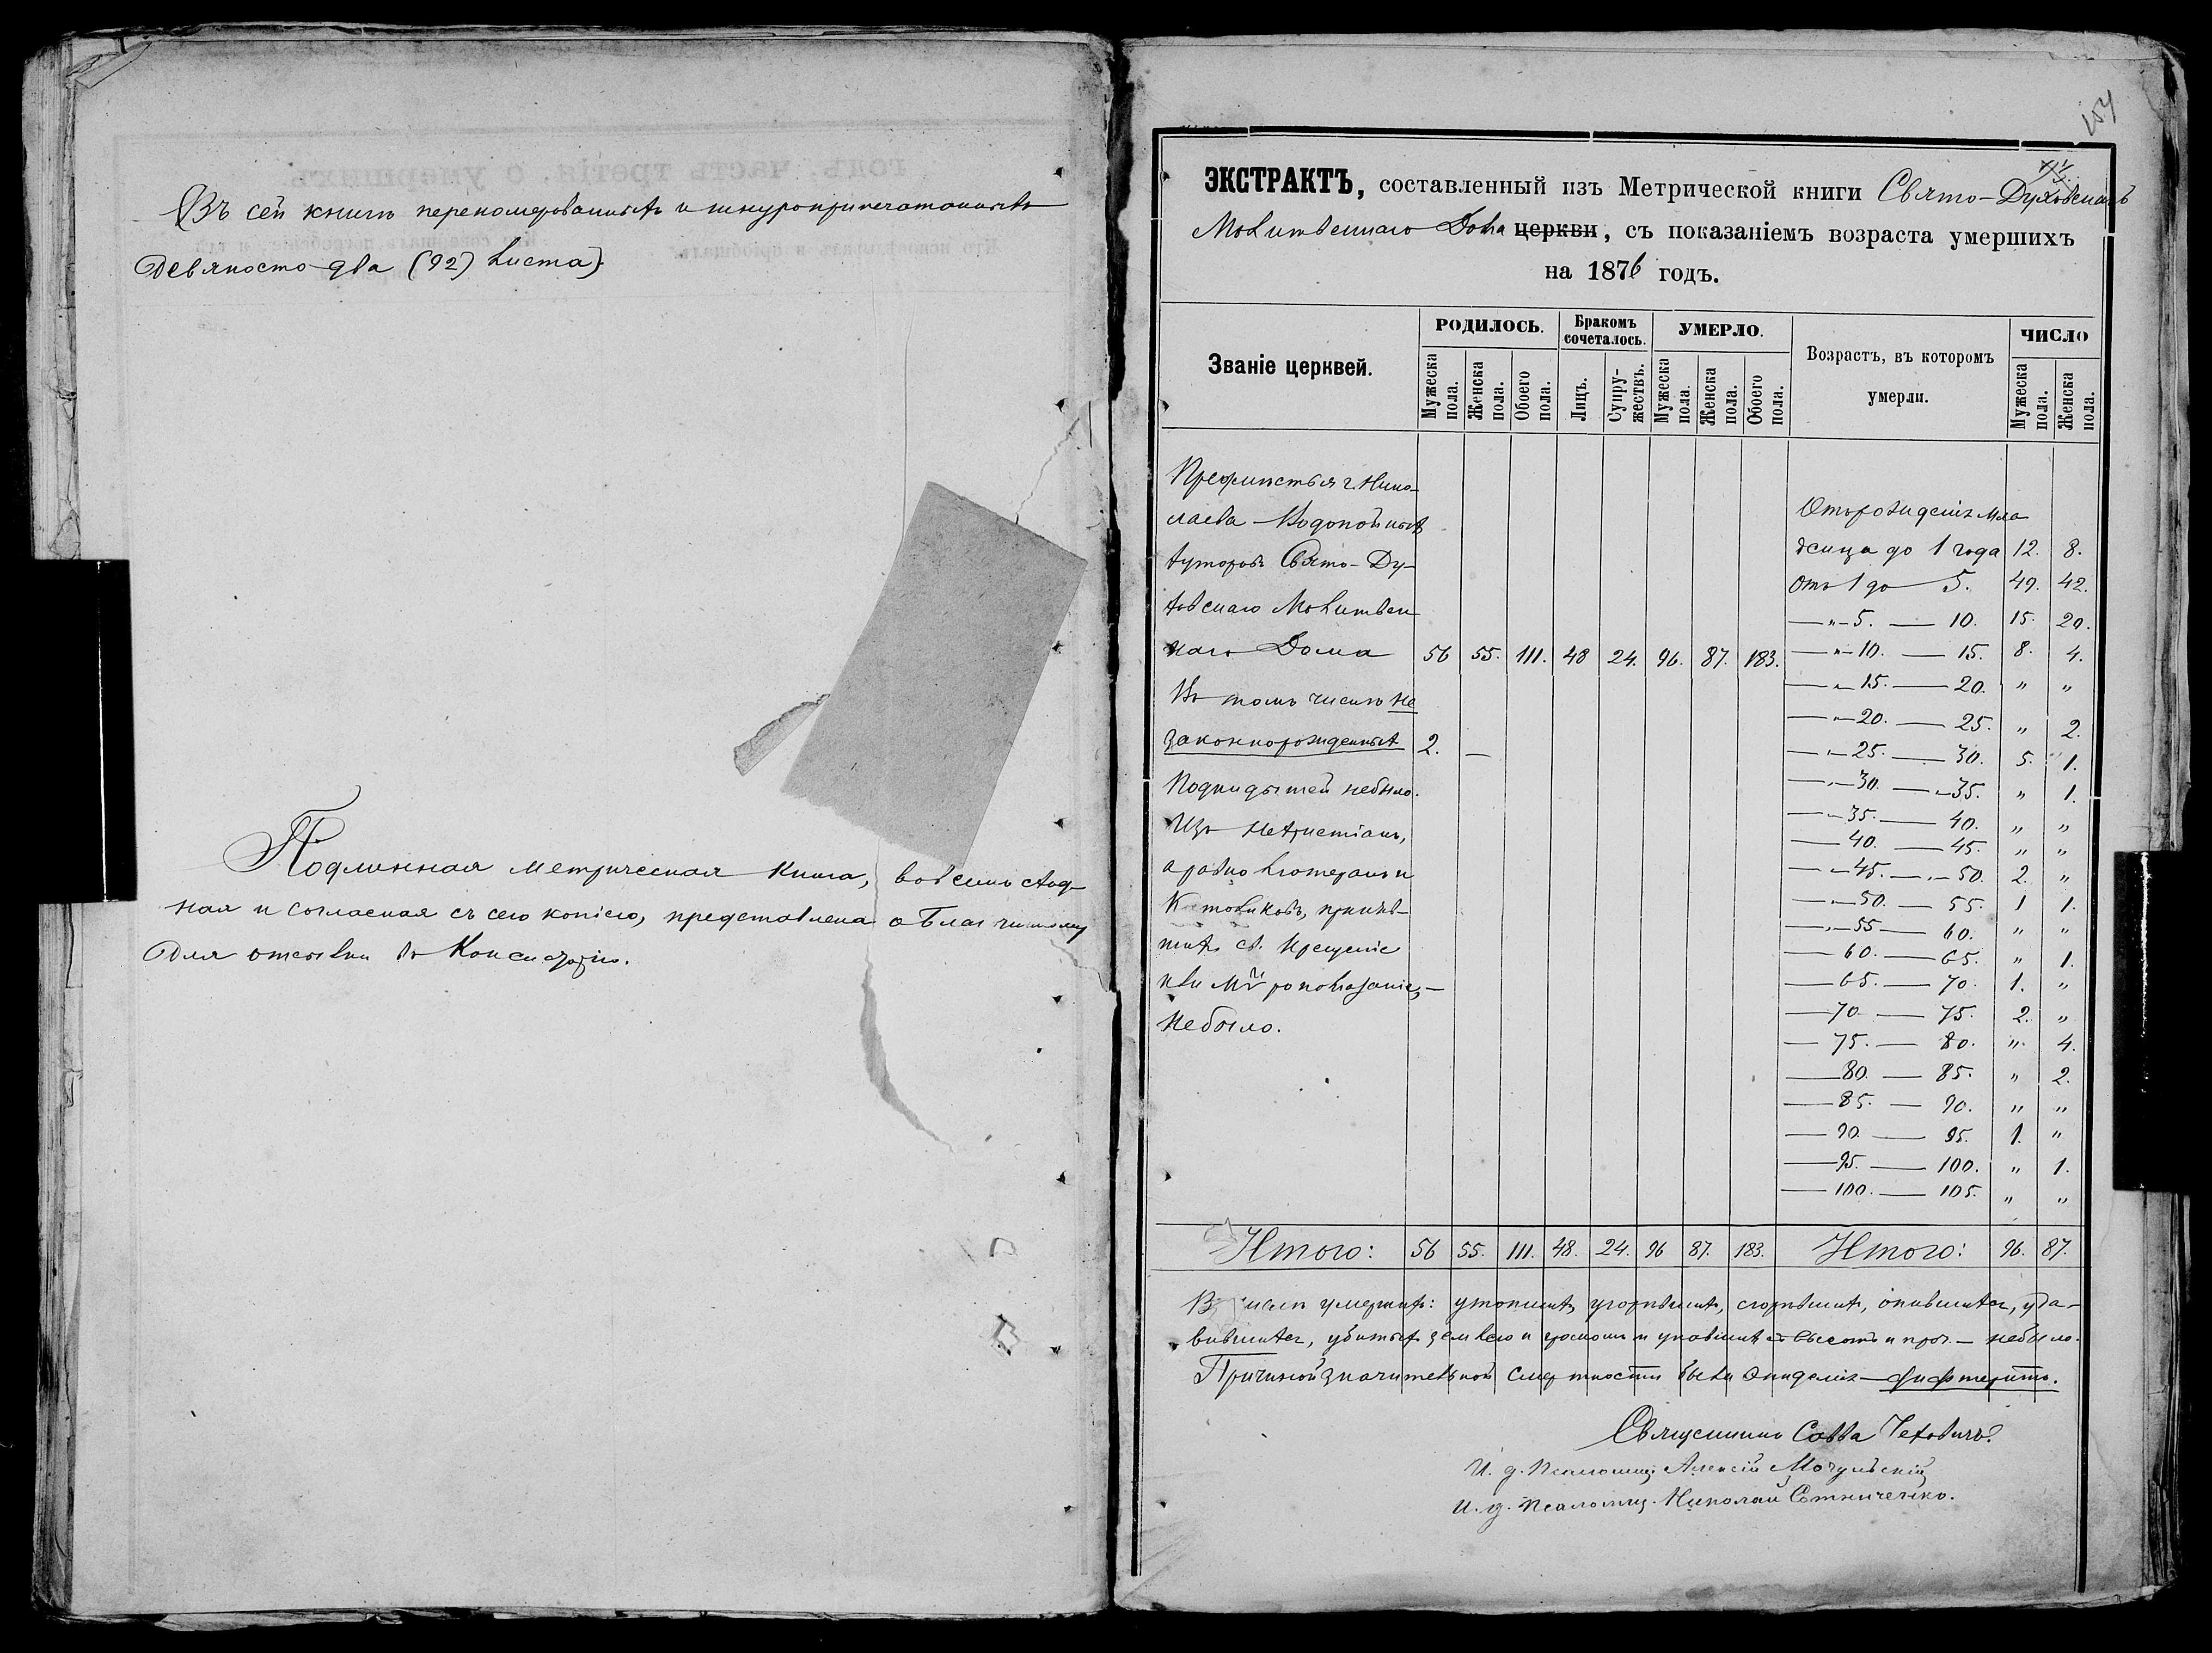 Въ сей книгѣ перекомерованныхъ и шнуроприпечатанныхъ
девяносто два (92) листа).
Подлинная метрическая книга, во всемъ сход-
ная и согласная съ сею копіею, представлена о. Благочинному
для отсылки въ Консисторію.
154
ЭКСТРАКТЪ, составленный изъ Метрической книги Свято-Духовскаго
Молитвеннаго Дома церкви, съ показаніемъ возраста умершихъ
на 1876 годъ.
Званіе церквей.
РОДИЛОСЬ. Бракомъ сочеталось. УМЕРЛО. Возрастъ, въ которомъ умерли. ЧИСЛО
Мужеска пола. Женска пола. Обоего пола. Лицъ. Супру-жествъ. Мужеска пола. Женска пола. Обоего пола. Мужеска пола. Женска пола.
Предмѣстья г. Нико-
лаева Водопойныхъ
хуторовъ Свято-Ду-
ховскаго Молитвен
наго Дома 56 55. 111. 48 24. 96. 87. 183.
Въ томъ числѣ не
законнорожденныхъ 2. —
Подкидышей небыло.
Изъ нехристіанъ,
а равно Лютеранъ и
Католиковъ, приняв-
шихъ св. Крещеніе
или Мѵропомазаніе, —
небыло.
Отъ рожденія мла
денца до 1 года 12. 8.
Отъ 1 до 5. 49. 42.
— " — 5. — 10. 15. 20.
— " — 10. — 15. 8. 4.
— " — 15. — 20. " "
— " — 20. — 25. " 2.
— " — 25. — 30. 5. 1.
— " — 30. — 35. " 1.
— " — 35. — 40. " "
— 40. — 45. " "
— " — 45. — " — 50. 2. "
— " — 50. — 55. 1 1.
— " — 55 — 60. " "
— 60. — 65. " 1.
— 65. — 70. 1. "
— 70 — 75. 2. "
— 75. — 80. " 4.
— 80. — 85. " 2.
— 85. — 90. " "
— 90. — 95. 1. "
— 95. — 100. " 1.
— 100. — 105. " "
Итого: 56 55. 111. 48. 24. 96 87. 183. Итого: 96. 87.
В числѣ умершихъ: утопшихъ, угорѣвшихъ, сгорѣвшихъ, опившихся, уда-
вившихся, убитыхъ землею и громомъ и упавшихъ съ высоты и проч. — небыло.
Причиной значительной смертности была эпидемія — дифтеритъ.
Священникъ Савва Чеховичъ.
И. д. Псаломщ. Алексій Мочульскій
И. д. Псаломщ. Николай Сотниченко.